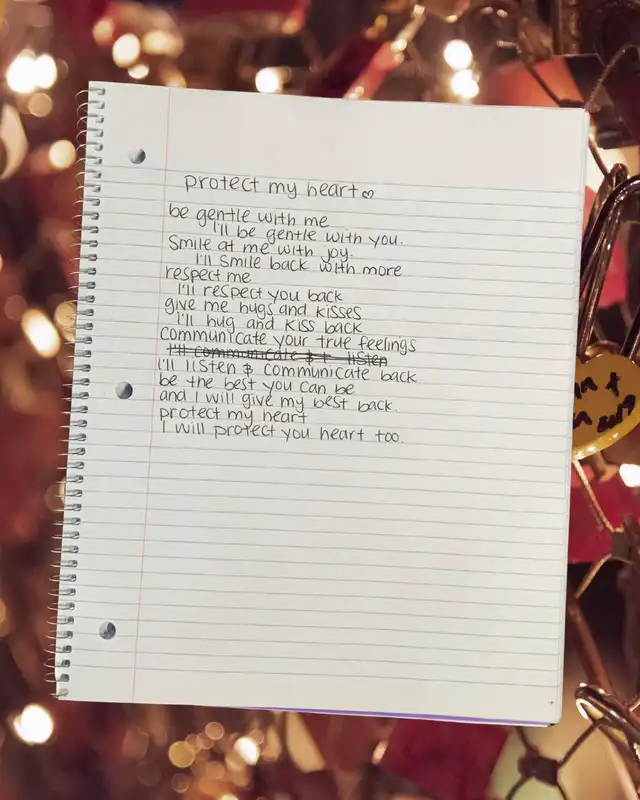 protect my heart♡
be gentle with me
I'll be gentle with you.
Smile at me with joy.
I'll smile back with more
respect me
I'll respect you back
give me hugs and kisses
I'll hug and kiss back
Communicate your true feelings
I'll communicate & listen
I'll listen & communicate back
be the best you can be
and I will give my best back.
protect my heart
I will protect you heart too.